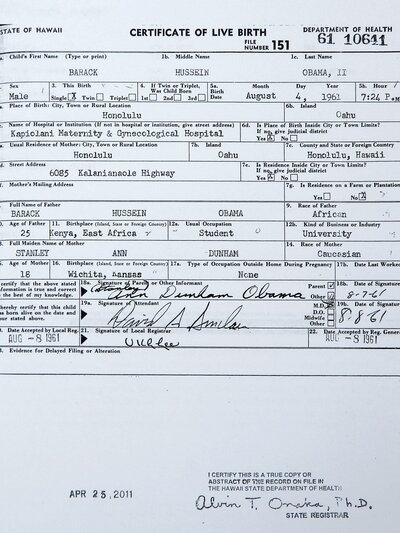 STATE OF HAWAII CERTIFICATE OF LIVE BIRTH DEPARTMENT OF HEALTH
FILE NUMBER 151 61 10641
Child's First Name (Type or print) 1b. Middle Name 1c. Last Name
BARACK HUSSEIN OBAMA, II
Sex 3. This Birth 4. If Twin or Triplet, Was Child Born 5a. Birth Date Month Day Year 5b. Hour
Male Single Twin Triplet 1st 2nd 3rd August 4, 1961 7:24 P.M.
Place of Birth: City, Town or Rural Location 6b. Island
Honolulu Oahu
Name of Hospital or Institution (If not in hospital or institution, give street address) 6d. Is Place of Birth Inside City or Town Limits? If no, give judicial district
Kapiolani Maternity & Gynecological Hospital Yes No
Usual Residence of Mother: City, Town or Rural Location 7b. Island 7c. County and State or Foreign Country
Honolulu Oahu Honolulu, Hawaii
Street Address 7e. Is Residence Inside City or Town Limits? If no, give judicial district
6085 Kalanianaole Highway Yes No
Mother's Mailing Address 7g. Is Residence on a Farm or Plantation
Yes No
Full Name of Father 9. Race of Father
BARACK HUSSEIN OBAMA African
Age of Father 11. Birthplace (Island, State or Foreign Country) 12a. Usual Occupation 12b. Kind of Business or Industry
25 Kenya, East Africa Student University
Full Maiden Name of Mother 14. Race of Mother
STANLEY ANN DUNHAM Caucasian
Age of Mother 16. Birthplace (Island, State or Foreign Country) 17a. Type of Occupation Outside Home During Pregnancy 17b. Date Last Worked
18 Wichita, Kansas None
certify that the above stated information is true and correct to the best of my knowledge. 18a. Signature of Parent or Other Informant Parent Other 18b. Date of Signature
(Stanley) Ann Dunham Obama 8-7-61
hereby certify that this child was born alive on the date and hour stated above. 19a. Signature of Attendant M.D. D.O. Midwife Other 19b. Date of Signature
David A Sinclair 8-8-61
Date Accepted by Local Reg. 21. Signature of Local Registrar 22. Date Accepted by Reg. General
AUG -8 1961 UKLee AUG -8 1961
Evidence for Delayed Filing or Alteration
APR 25, 2011
I CERTIFY THIS IS A TRUE COPY OR
ABSTRACT OF THE RECORD ON FILE IN
THE HAWAII STATE DEPARTMENT OF HEALTH
Alvin T. Onaka, Ph.D.
STATE REGISTRAR